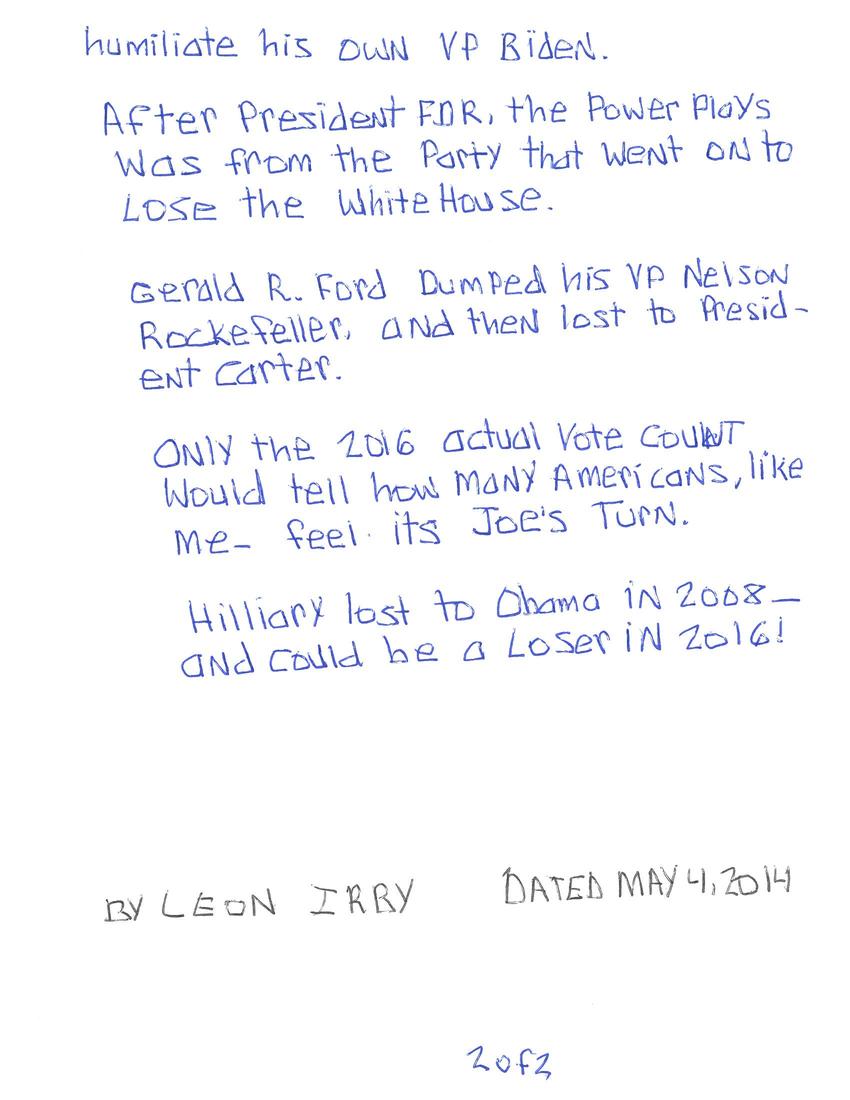 humiliate his own VP Biden.
After President FDR, the Power Plays
Was from the Party that went on to
Lose the White House.
Gerald R. Ford Dumped his VP Nelson
Rockefeller, and then lost to Presid-
ent Carter.
Only the 2016 actual Vote Count
Would tell how many Americans, like
me- feel its Joe's Turn.
Hilliary lost to Obama in 2008-
and could be a Loser in 2016!
BY LEON IRBY DATED MAY 4, 2014
2 of 2